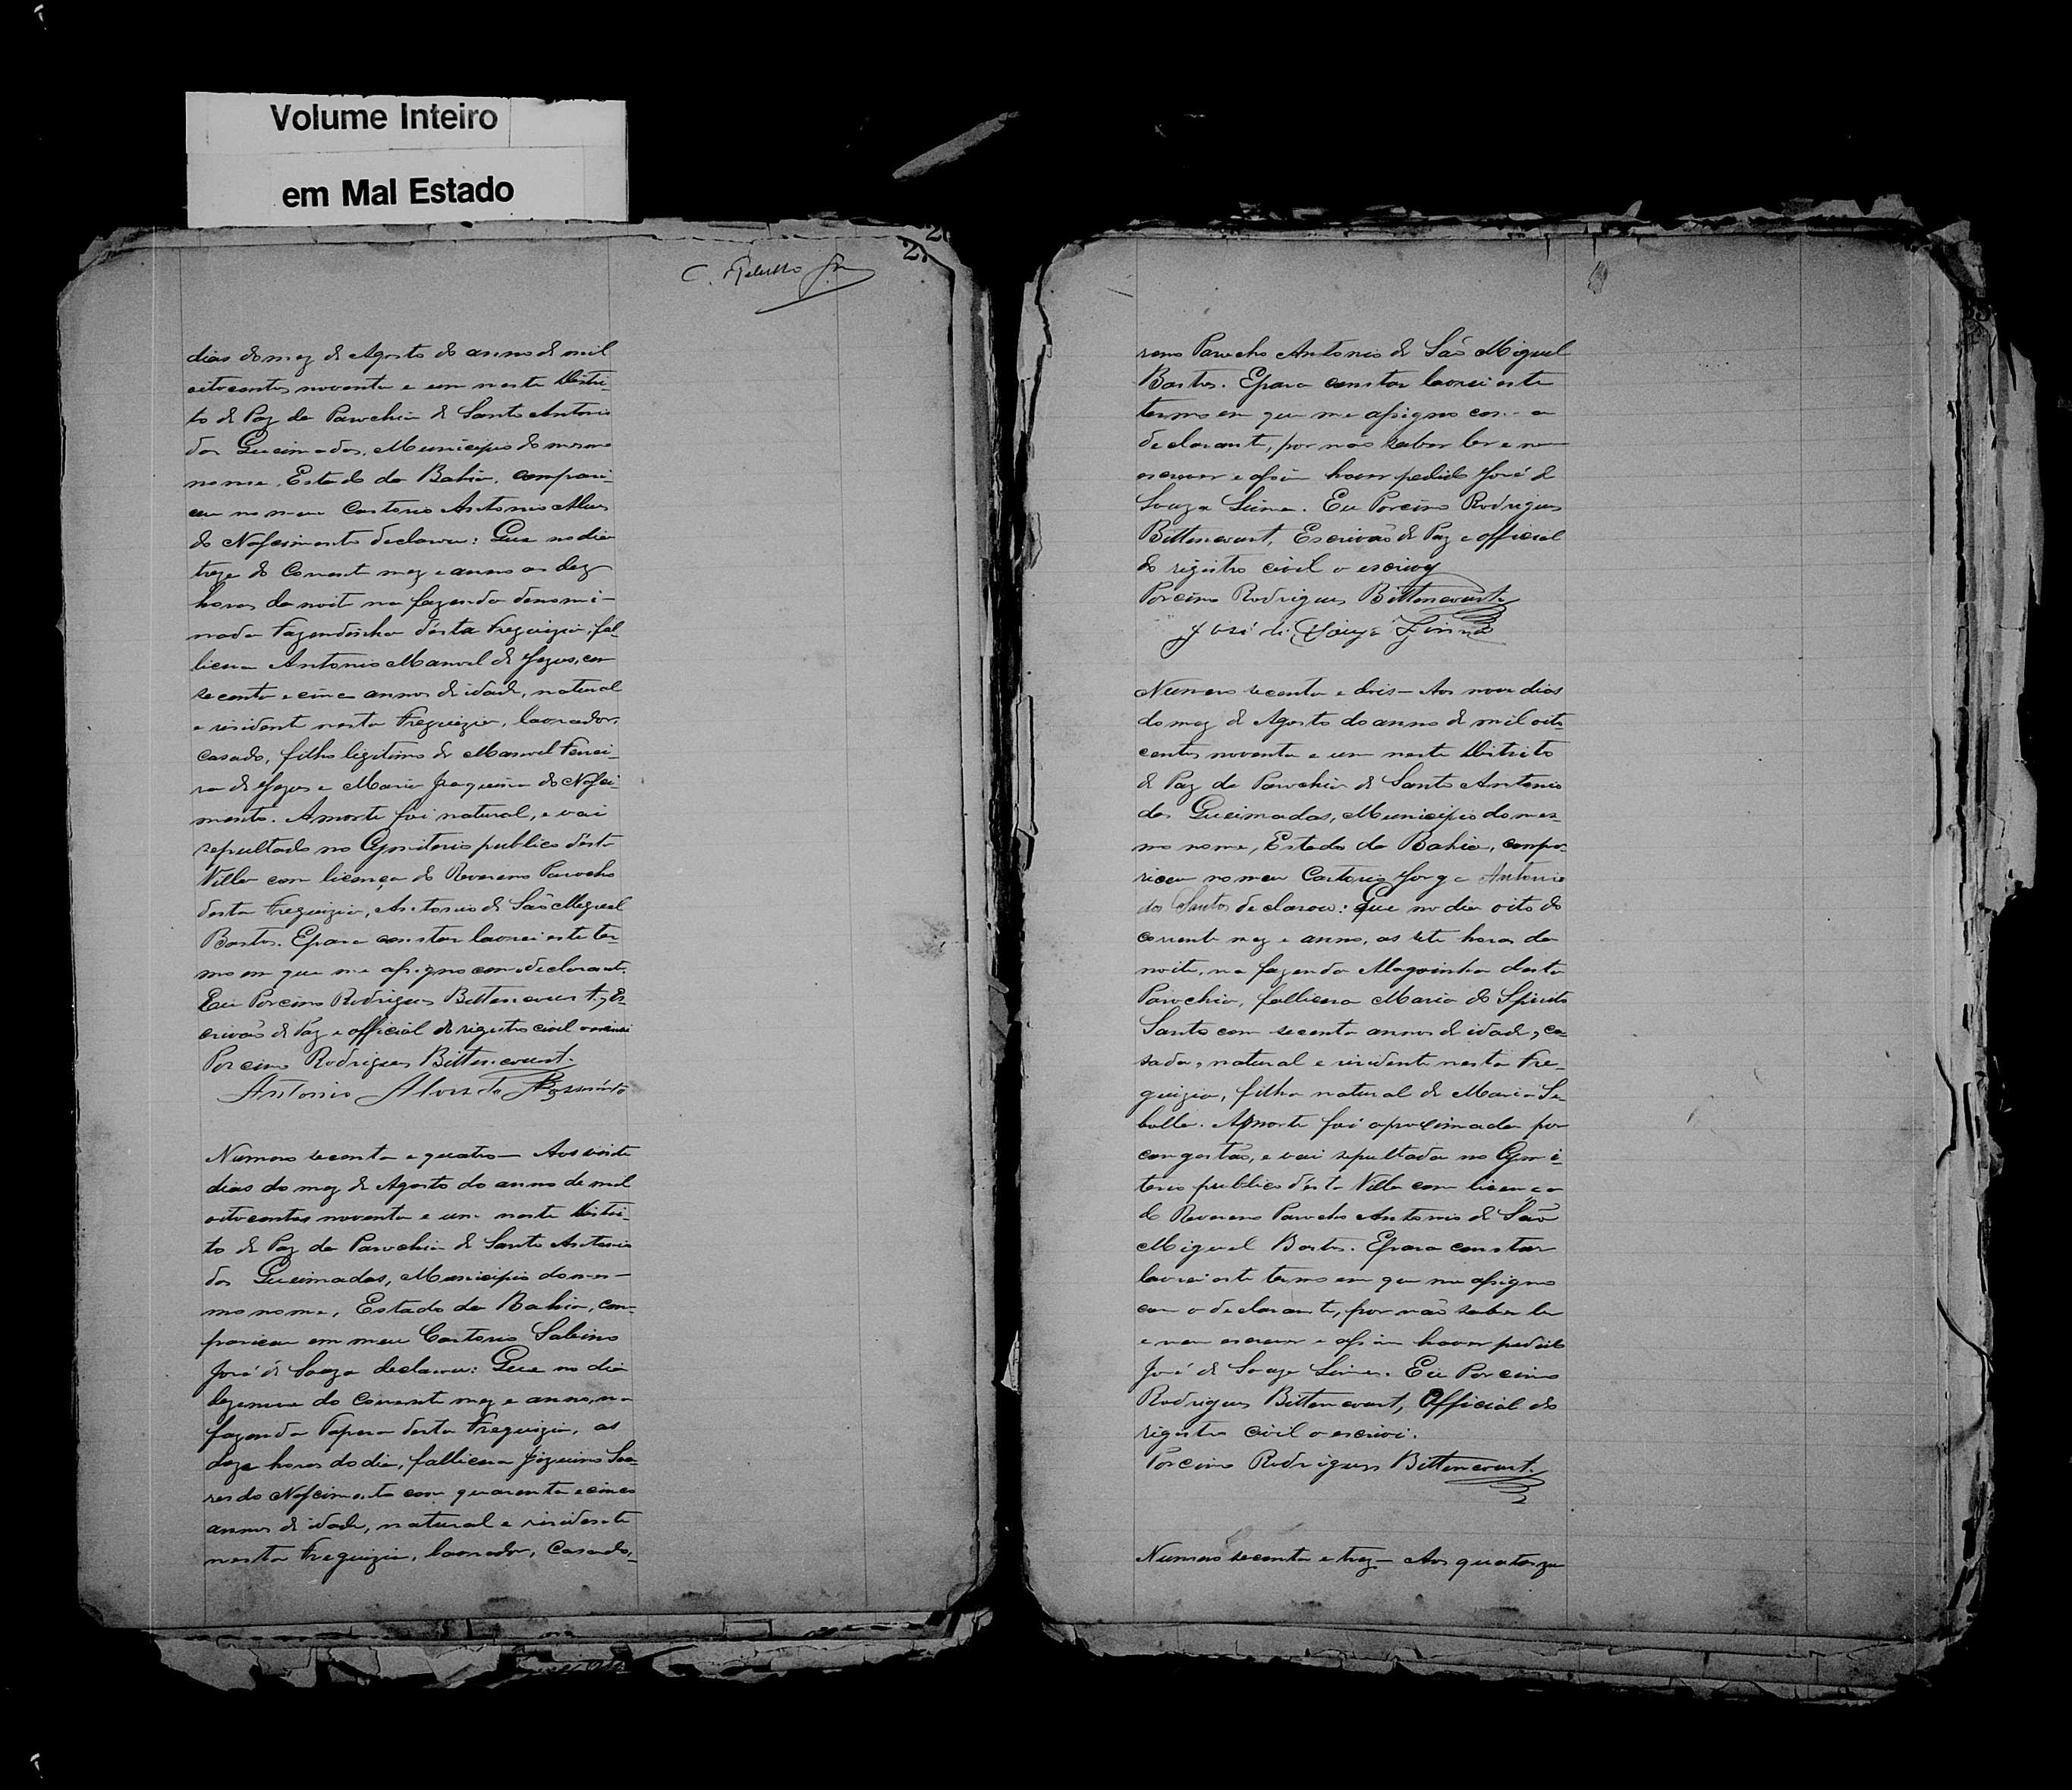 Volume Inteiro
em Mal Estado
2
27
dias do mez de Agosto do anno de mil
oitocentos noventa e um neste Distri-
to de Paz da Parochia de Santo Antonio
das Queimadas, Municipio do mesmo
nome, Estado da Bahia, compare-
ceu no meu Cartorio Antonio Alves
do Nascimento declarou: Que no dia
treze do corrente mez e anno as dez
horas da noite na fazenda denomi-
nada Fazendinha désta Freguizia, fal-
liceu Antonio Manoel de Jezus, com
secenta e cinco annos de idade, natural
e rizidente nesta Freguizia, lavrador,
casado, filho ligitimo de Manoel Ferrei-
ra de Jezus e Maria Joaquina do Nasci-
mento. A morte foi natural, e vai
sepultado no Cymiterio publico désta
Villa com licença do Revereno Parocho
desta Freguizia, Antonio de São Miguel
Bastos. E para constar lavrei este ter-
mo em que me assigno com o declarante.
Eu Porcino Rodrigues Bittencourt, Es-
crivão de Paz e official do rigistro civil o escrivi
Porcino Rodrigues Bittencourt.
Antonio Alves do Nasimento
Numero secenta e quatro — Aos vinte
dias do mez de Agosto do anno de mil
oitocentos noventa e um neste Distri-
to de Paz da Parochia de Santo Antonio
das Queimadas, Municipio do mes-
mo nome, Estado da Bahia, com-
pariceu em meu Cartorio Sabino
José de Souza declarou: Que no dia
dezenove do corrente mez e anno, na
fazenda Tapera desta Freguizia, as
doze horas do dia, falliceu Soa-
res do Nascimento com quarenta e cinco
annos de idade, natural e rizidente
nesta Freguizia, lavrador, Casado,
reno Parocho Antonio de São Miguel
Bastos. E para constar lavrei este
termo em que me assigno com o
declarante, por não saber ler e nem
escrever e assim haver pedido José de
Souza Lima. Eu Porcino Rodrigues
Bittencourt, Escrivão de Paz e official
do rigistro civil o escrivy
Porcino Rodrigues Bittencourt
José de Souza Lima
Numero secenta e dois — Aos nove dias
do mez de Agosto do anno de mil oito
centos noventa e um neste Distrito
de Paz da Parochia de Santo Antonio
das Queimadas, Municipio do mes-
mo nome, Estado da Bahia, compa-
riceu no meu Cartorio Jorge Antonio
dos Santos declarou: Que no dia oito do
corrente mez e anno, as sete horas da
noite, na fazenda Alagoinha desta
Parochia, falliceu Maria do Spirito
Santo com secenta annos de idade, ca-
sada, natural e rizidente nesta Fre-
guizia, filha natural de Maria Sa-
bella. A morte foi aprocimada por
congestão, e vai sepultada no Cymi-
terio publico désta Villa com licença
do Revereno Parocho Antonio de São
Miguel Bastos. E para constar
lavrei este termo em que me assigno
com o declarante, por não saber ler
e nem escrever e assim haver pedido
José de Souza Lima. Eu Porcino
Rodrigues Bittencourt, Official do
rigistro civil o escrivi.
Porcino Rodrigues Bittencourt.
Numero secenta e trez — Aos quatorze